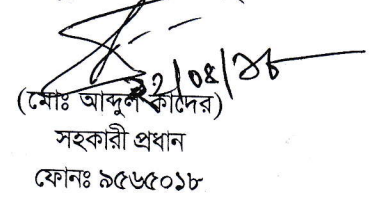 (মোঃ আব্দুল কাদের)
সহকারী প্রধান
ফোনঃ ৯৫৬৫০১৮